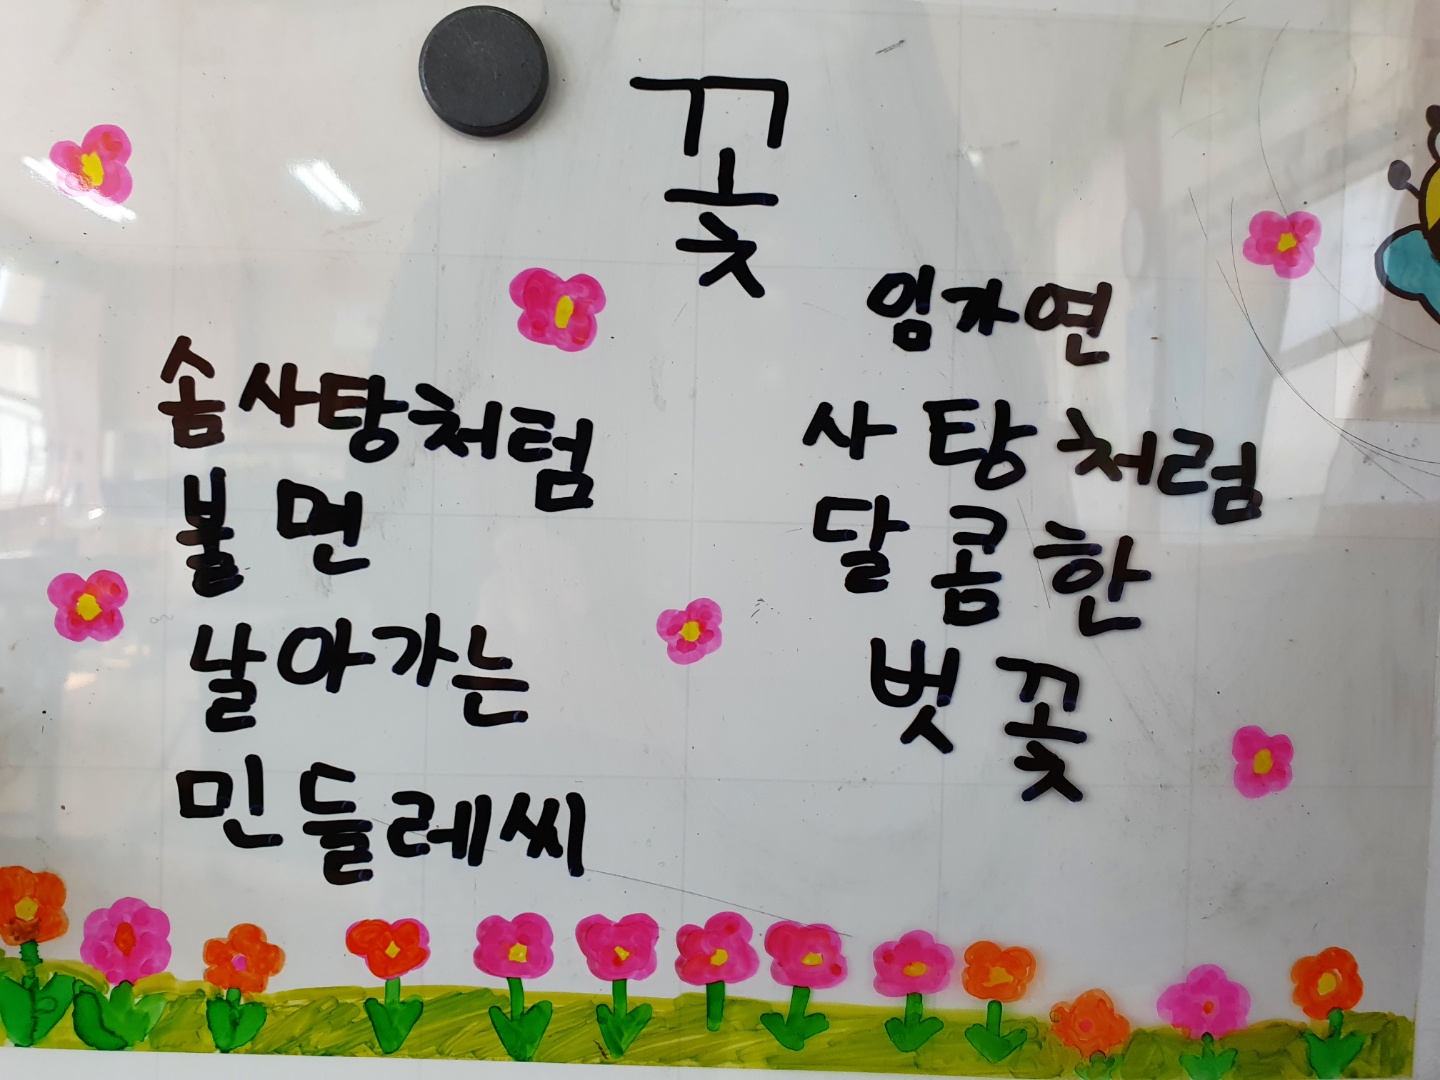 꽃
임자연
솜사탕처럼
불면
날아가는
민들레씨
사탕처럼
달콤한
벗꽃